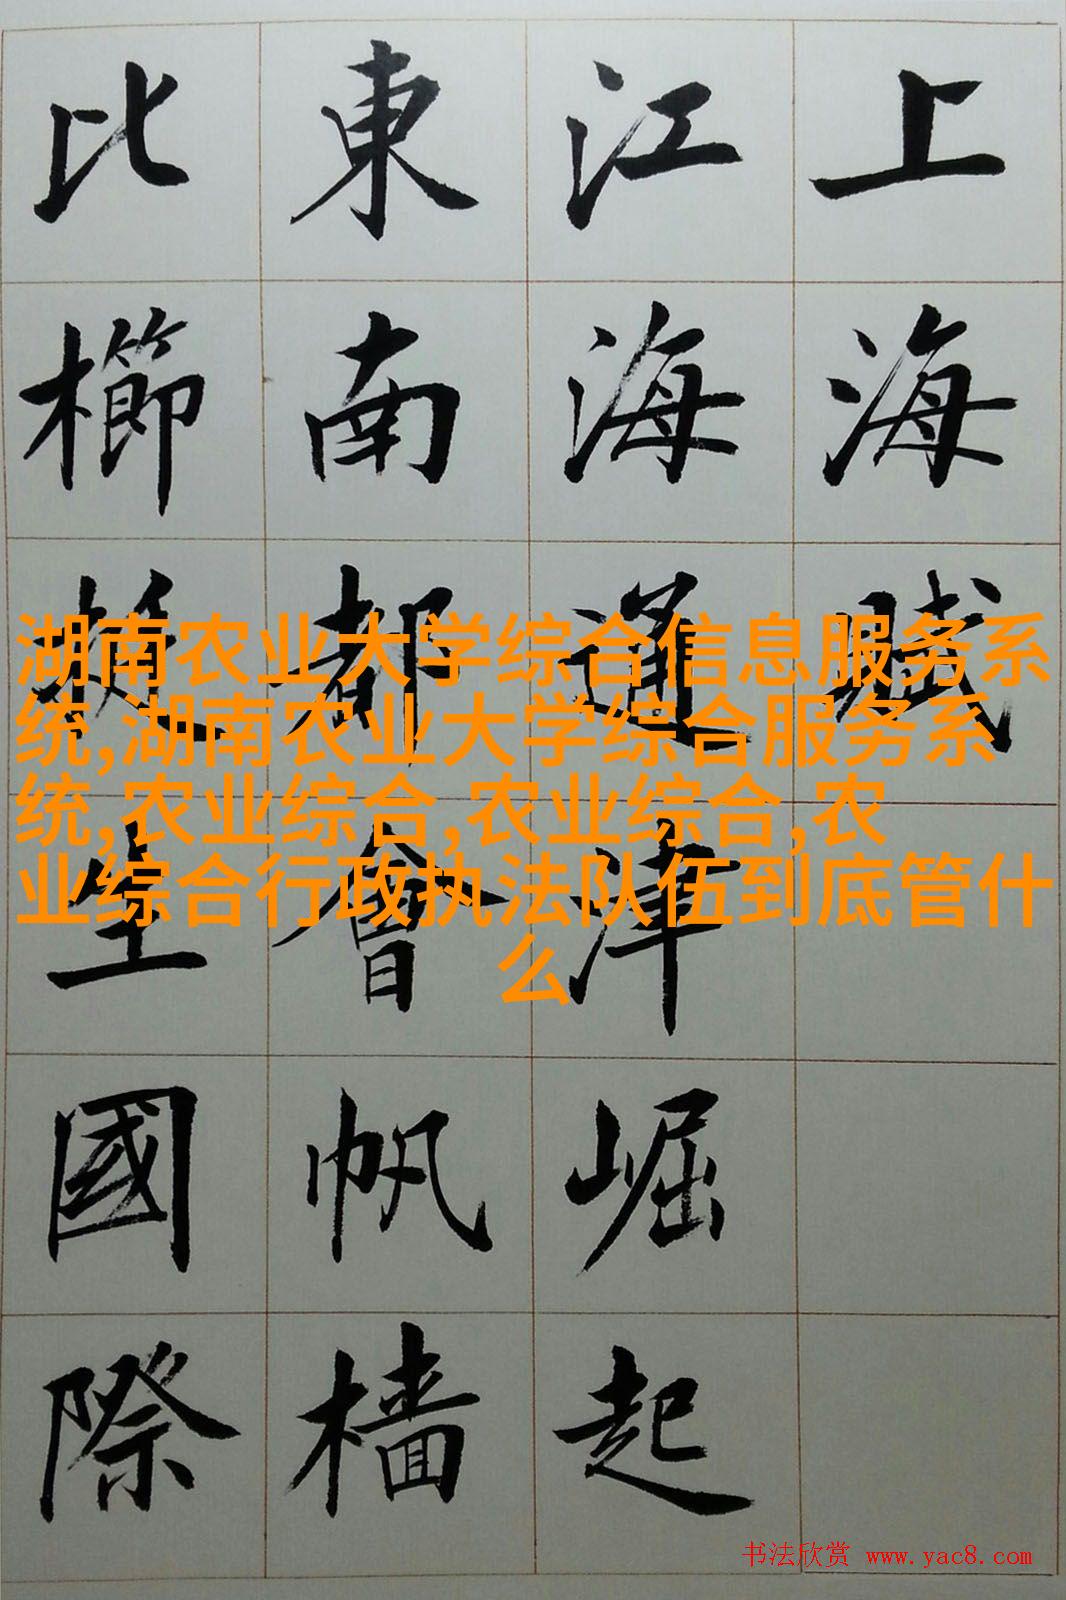 上海賦
江海通津崛起
東南都會帆檣
比櫛挺生國際
湖南农业大学综合信息服务系
统,湖南农业大学综合服务系
统,农业综合,农业综合,农
业综合行政执法队伍到底管什
么
书法欣赏 www.yac8.com